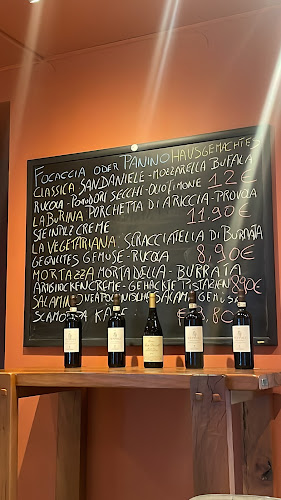 FOCACCIA ODER PANINO HAUSGEMACHTES
CLASSICA SANDANIELE - MOZZARELLA BUFALA
RUCOLA - POMODORI SECCHI - OLIO LIMONE 12€
LA BURINA PORCHETTA DI ARICCIA - PROVOLA
STEINPILZ CREME 11,90€
LA VEGETARIANA: SCRACCIATELLA DI BURRATA
GEGRILLTES GEMÜSE - RUCOLA 8,90€
MORTAZZA MORTADELLA - BURRATA
ARTISHOCKENCREME - GEHACKTE PISTAZIEN 8,90€
SALAMINO NEAPOLITANISCHE SALAMI
SCAMORZA